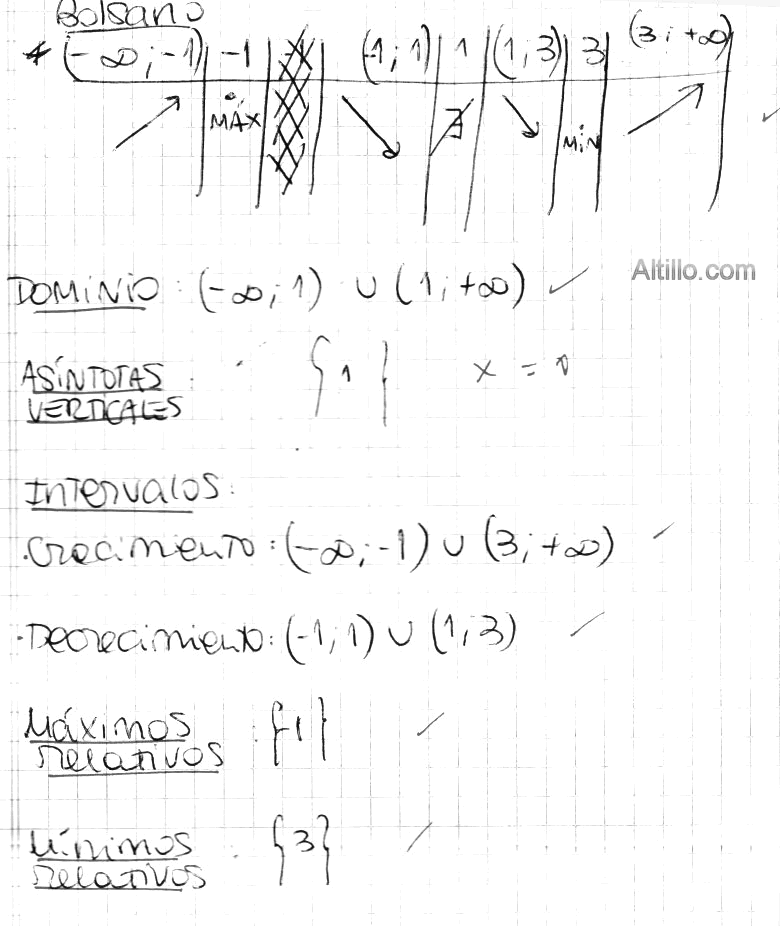 Bolsano
(-∞; -1) -1 (-1; 1) 1 (1, 3) 3 (3; +∞)
MÁX ∄ MíN
Altillo.com
DOMINIO: (-∞; 1) ∪ (1; +∞) ✓
ASÍNTOTAS : { 1 } x = 1
VERTICALES
INTERVALOS:
.Crecimiento: (-∞; -1) ∪ (3; +∞)
.Decrecimiento: (-1; 1) ∪ (1; 3)
MÁXIMOS : {-1}
relativos
Mínimos : {3}
relativos